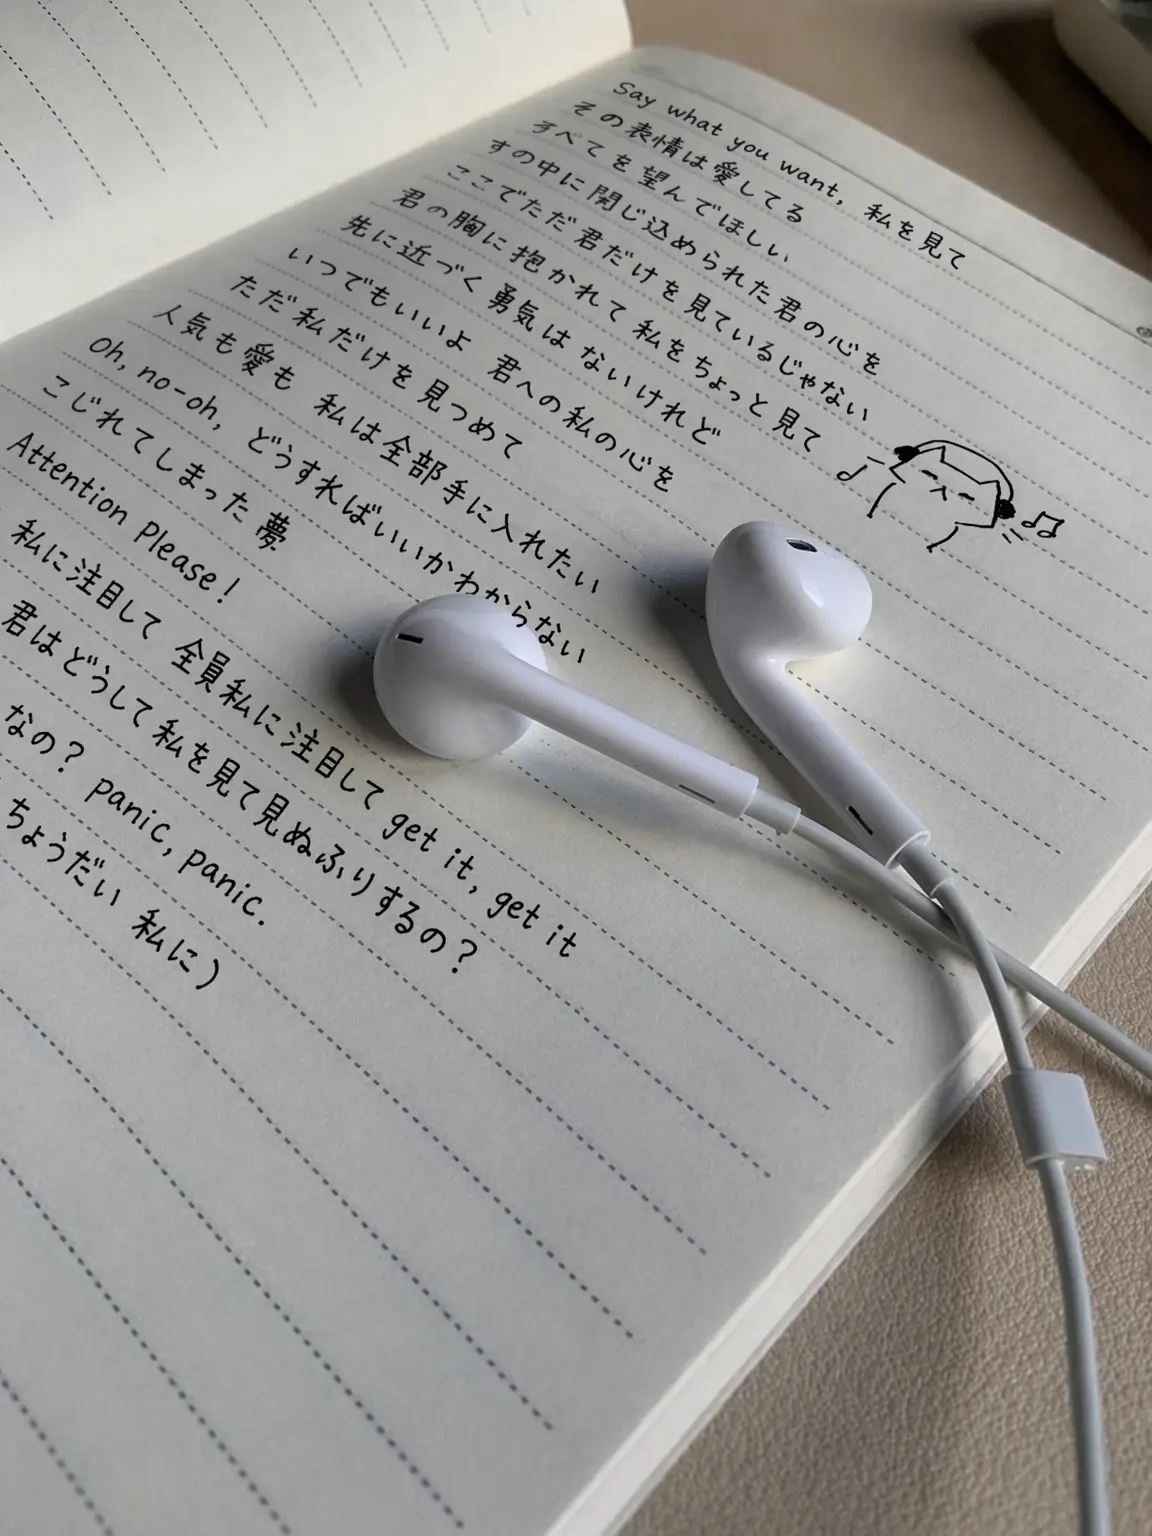 Say what you want, 私を見て
その表情は愛してる
すべてを望んでほしい
すの中に閉じ込められた君の心を
ここでただ君だけを見ているじゃない
君の胸に抱かれて 私をちょっと見て
先に近づく勇気はないけれど
いつでもいいよ 君への私の心を
ただ私だけを見つめて
人気も愛も 私は全部手に入れたい
Oh, no-oh, どうすればいいかわからない
こじれてしまった夢
Attention Please!
私に注目して 全員私に注目して get it, get it
君はどうして私を見て見ぬふりするの?
なの? panic, panic.
ちょうだい 私に)